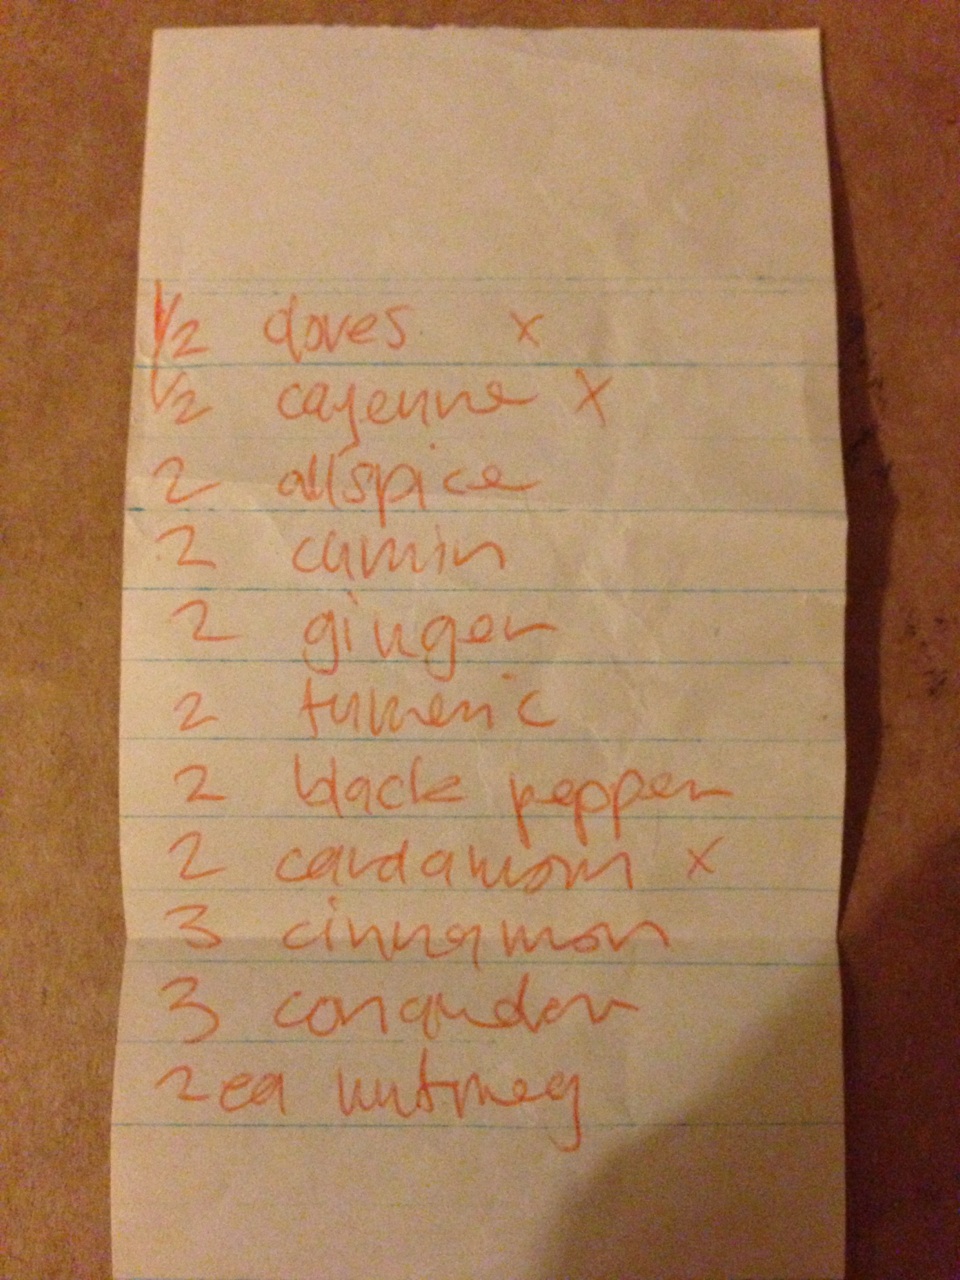 1/2 cloves x
1/2 cayenne x
2 allspice
2 cumin
2 ginger
2 tumeric
2 black pepper
2 cardamom x
3 cinnamon
3 coriander
2 ea nutmeg